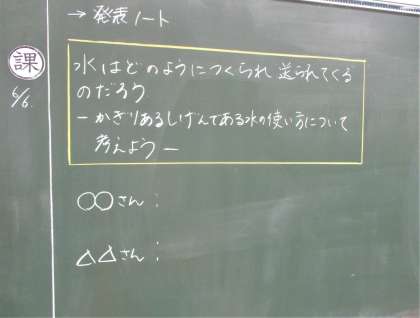 → 発表ノート
課
6/6
水はどのようにつくられ 送られてくる
のだろう
ーかぎりあるしげんである水の使い方について
考えようー
○○さん：
△△さん：